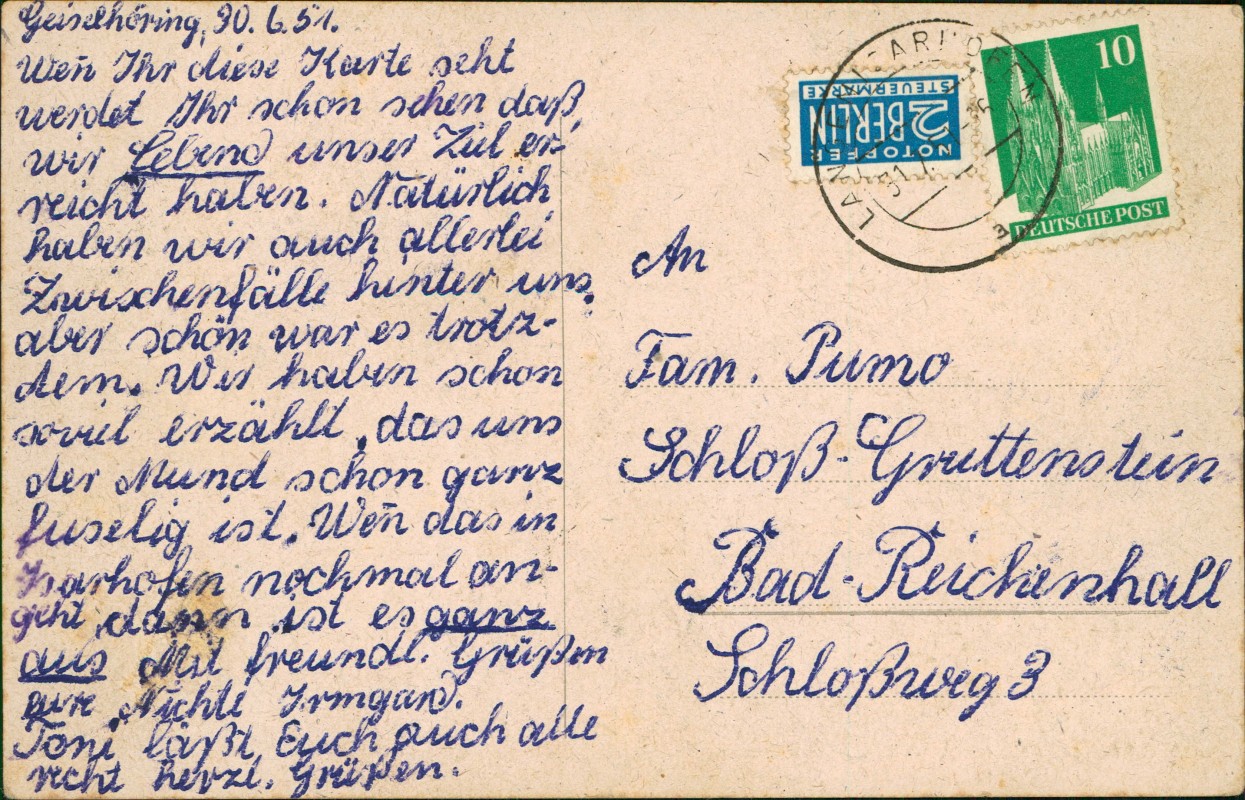 Geiselhöring, 30.6.51.
Wen̄ Ihr diese Karte seht
werdet Ihr schon sehen daß,
wir lebend unser Ziel er-
reicht haben. Natürlich
haben wir auch allerlei
Zwischenfälle hinter uns,
aber schön war es trotz-
dem. Wir haben schon
soviel erzählt, das uns
der Mund schon ganz
fuselig ist. Wen̄ das in
Isarhofen nochmal an-
geht, dann ist es ganz
aus Mit freundl. Grüßen
eure Nichte Irmgard.
Toni läßt Euch auch alle
recht herzl. Grüßen.
NOTOPFER
2 BERLIN
STEUERMARKE
10
DEUTSCHE POST
An
Fam. Pumo
Schloß-Gruttenstein
Bad-Reichenhall
Schloßweg 3